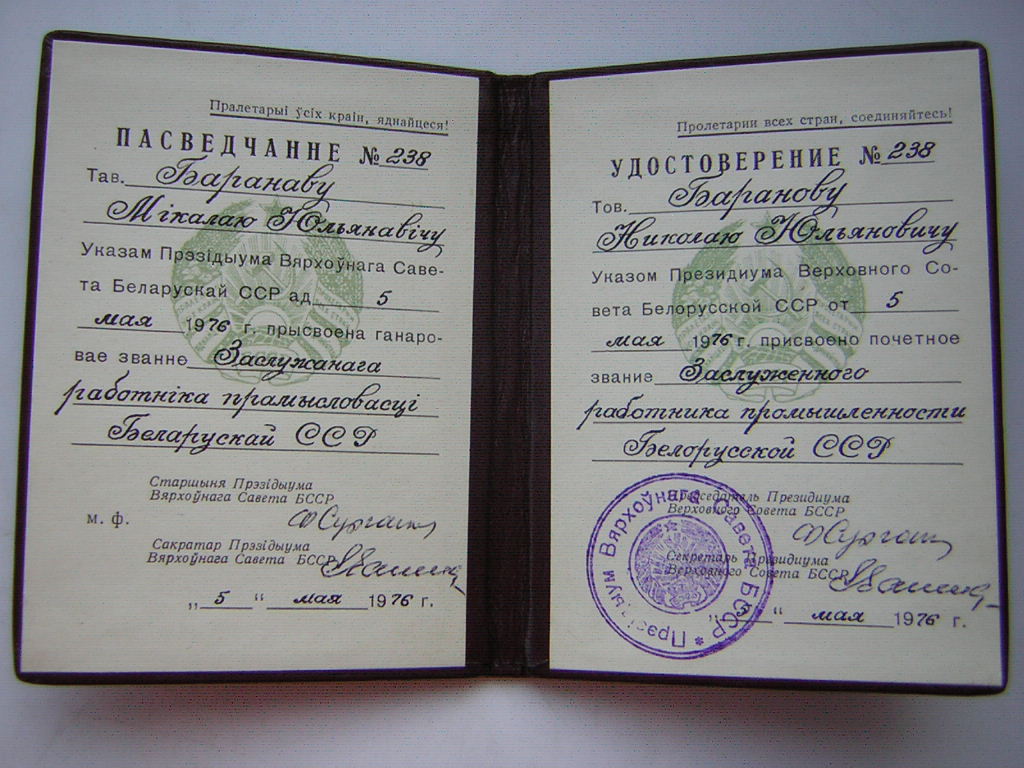 Пралетарыі ўсіх краін, яднайцеся!
ПАСВЕДЧАННЕ № 238
Тав. Баранаву
Мікалаю Юльянавічу
Указам Прэзідыума Вярхоўнага Саве-
та Беларускай ССР ад 5
мая 1976 г. прысвоена ганаро-
вае званне Заслужанага
работніка прамысловасці
Беларускай ССР
Старшыня Прэзідыума
Вярхоўнага Савета БССР
м. ф.
Сакратар Прэзідыума
Вярхоўнага Савета БССР
„ 5 “ мая 1976 г.
Пролетарии всех стран, соединяйтесь!
УДОСТОВЕРЕНИЕ № 238
Тов. Баранову
Николаю Юльяновичу
Указом Президиума Верховного Со-
вета Белорусской ССР от 5
мая 1976 г. присвоено почетное
звание Заслуженного
работника промышленности
Белорусской ССР
Председатель Президиума
Верховного Совета БССР
Секретарь Президиума
Верховного Совета БССР
„ 5 “ мая 1976 г.
Прэзідыум Вярхоўнага Савета БССР *